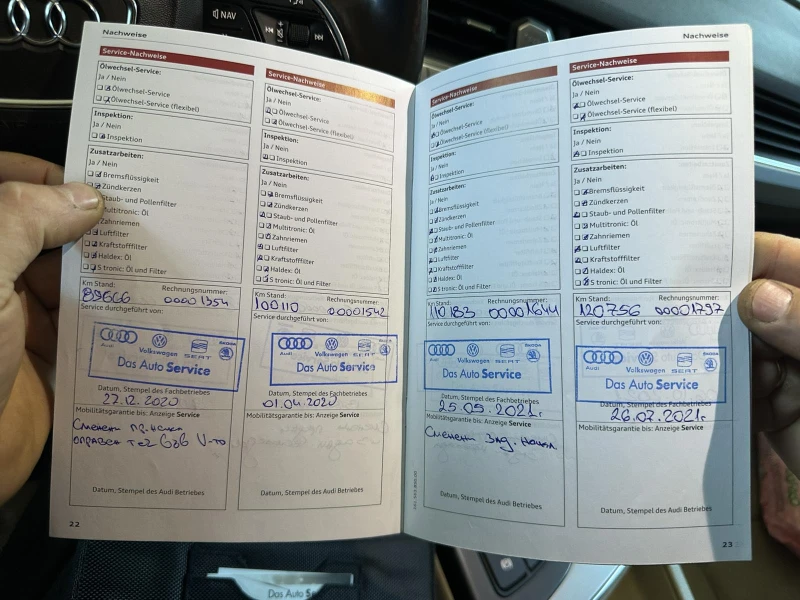 NAV
Nachweise
Service-Nachweise
Ölwechsel-Service:
Ja / Nein
Ölwechsel-Service
Ölwechsel-Service (flexibel)
Inspektion:
Ja / Nein
Inspektion
Zusatzarbeiten:
Ja / Nein
Bremsflüssigkeit
Zündkerzen
Staub- und Pollenfilter
Multitronic: Öl
Zahnriemen
Luftfilter
Kraftstofffilter
Haldex: Öl
S tronic: Öl und Filter
Km Stand: Rechnungsnummer:
89666 00001354
Service durchgeführt von:
Audi Volkswagen SEAT
Das Auto Service
Datum, Stempel des Fachbetriebes
27.12.2020
Mobilitätsgarantie bis: Anzeige Service
Сменени пр.
Datum, Stempel des Audi Betriebes
22
Service-Nachweise
Ölwechsel-Service:
Ja / Nein
Ölwechsel-Service
Ölwechsel-Service (flexibel)
Inspektion:
Ja / Nein
Inspektion
Zusatzarbeiten:
Ja / Nein
Bremsflüssigkeit
Zündkerzen
Staub- und Pollenfilter
Multitronic: Öl
Zahnriemen
Luftfilter
Kraftstofffilter
Haldex: Öl
S tronic: Öl und Filter
Km Stand: Rechnungsnummer:
100110 00001542
Service durchgeführt von:
Audi Volkswagen SEAT
Das Auto Service
Datum, Stempel des Fachbetriebes
01.04.2020
Mobilitätsgarantie bis: Anzeige Service
Datum, Stempel des Audi Betriebes
Nachweise
Service-Nachweise
Ölwechsel-Service:
Ja / Nein
Ölwechsel-Service
Ölwechsel-Service (flexibel)
Inspektion:
Ja / Nein
Inspektion
Zusatzarbeiten:
Ja / Nein
Bremsflüssigkeit
Zündkerzen
Staub- und Pollenfilter
Multitronic: Öl
Zahnriemen
Luftfilter
Kraftstofffilter
Haldex: Öl
S tronic: Öl und Filter
Km Stand: Rechnungsnummer:
110183 00001644
Service durchgeführt von:
Audi Volkswagen SEAT ŠKODA
Das Auto Service
Datum, Stempel des Fachbetriebes
25.05.2021г.
Mobilitätsgarantie bis: Anzeige Service
Сменени зад. накл.
Datum, Stempel des Audi Betriebes
Service-Nachweise
Ölwechsel-Service:
Ja / Nein
Ölwechsel-Service
Ölwechsel-Service (flexibel)
Inspektion:
Ja / Nein
Inspektion
Zusatzarbeiten:
Ja / Nein
Bremsflüssigkeit
Zündkerzen
Staub- und Pollenfilter
Multitronic: Öl
Zahnriemen
Luftfilter
Kraftstofffilter
Haldex: Öl
S tronic: Öl und Filter
Km Stand: Rechnungsnummer:
120756 00001797
Service durchgeführt von:
Audi Volkswagen SEAT ŠKODA
Das Auto Service
Datum, Stempel des Fachbetriebes
26.07.2021г.
Mobilitätsgarantie bis: Anzeige Service
Datum, Stempel des Audi Betriebes
23
Das Auto